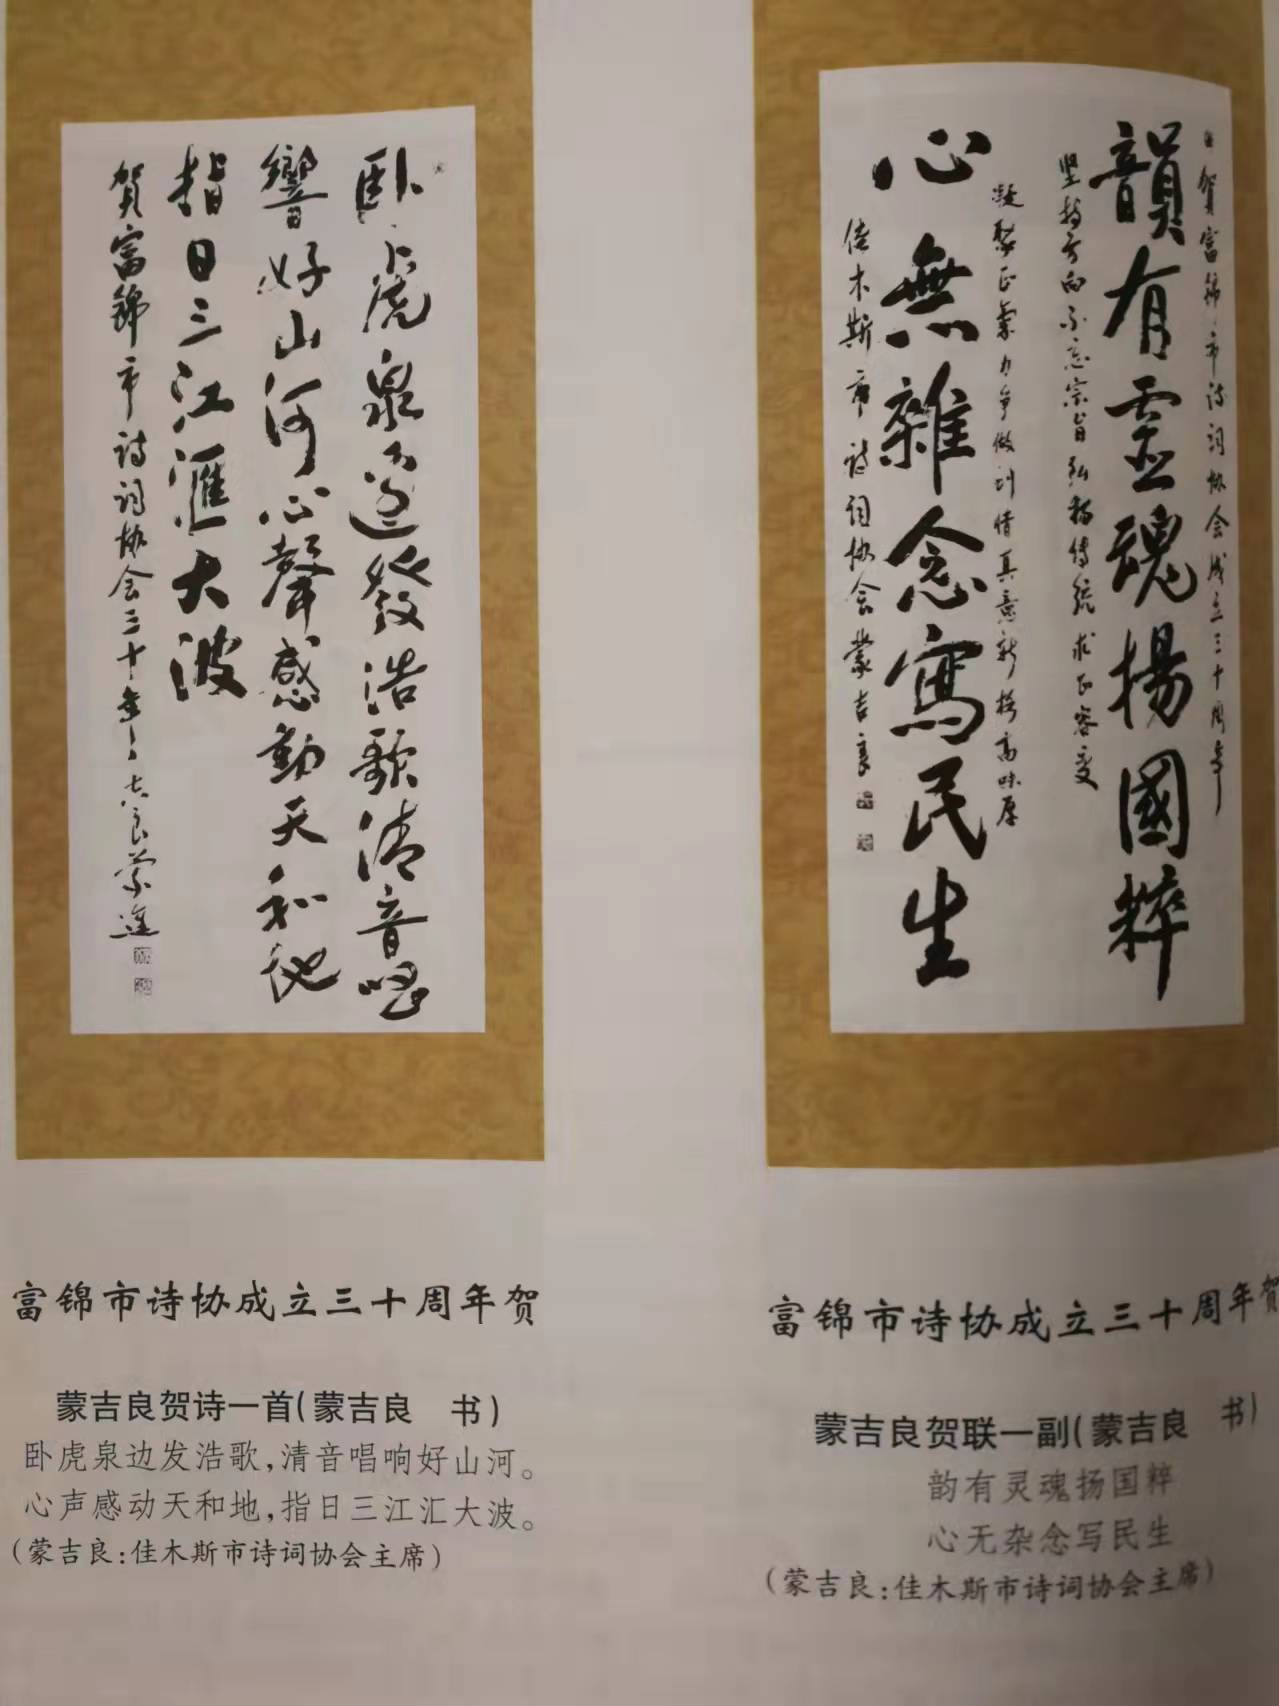 卧虎泉邊發浩歌清音唱
響好山河心聲感動天和地
指日三江滙大波
賀富錦市诗词协会三十年
吉良蒙進
富锦市诗协成立三十周年贺
蒙吉良贺诗一首(蒙吉良 书)
卧虎泉边发浩歌,清音唱响好山河。
心声感动天和地,指日三江汇大波。
(蒙吉良:佳木斯市诗词协会主席)
賀富锦市诗词协会成立三十周年
韻有靈魂揚國粹
坚持方向不忘宗旨弘揚傳统求正容变
凝聚正氣力争做到情真意新格高味厚
心無雜念寫民生
佳木斯市诗词协会蒙吉良
富锦市诗协成立三十周年贺
蒙吉良贺联一副(蒙吉良 书)
韵有灵魂扬国粹
心无杂念写民生
(蒙吉良:佳木斯市诗词协会主席)